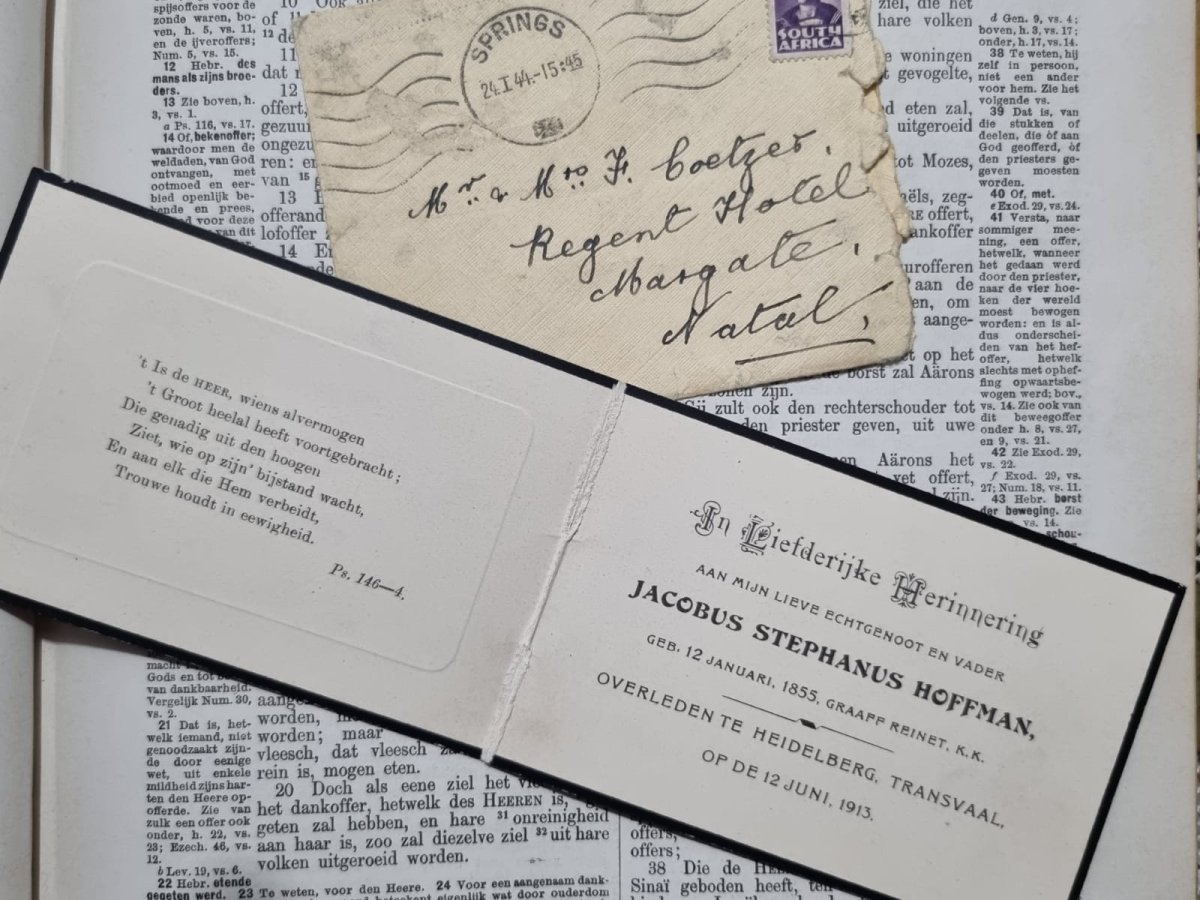 spijsoffers voor de
zonde waren, bo-
ven, h. 5, vs. 11,
en de ijveroffers;
Num. 5, vs. 15.
12 Hebr. des
mans als zijns broe-
ders.
13 Zie boven, h.
3, vs. 1.
a Ps. 116, vs. 17.
14 Of, bekenoffer;
waardoor men de
weldaden, van God
ontvangen, met
ootmoed en eer-
bied openlijk be-
kende en prees,
voor deze
van dit
10 Ook
of 11
12 de
11
dat
12
offert,
gezuu
ongezu
ren: en
van 15
13
offerand
lofoffer
14 En
SPRINGS
24.I 44.-15:45
SOUTH
AFRICA
Mr & Mrs F. Coetzer.
Regent Hotel
Margate,
Natal,
ziel, die het
hare volken
woningen
gevogelte,
eten zal,
uitgeroeid
tot Mozes,
zeg-
offert,
ankoffer
urofferen
aan de
en, om
aange-
op het
borst zal Aärons
zijn.
zult ook den rechterschouder tot
den priester geven, uit uwe
Aärons het
vet offert,
zijn.
d Gen. 9, vs. 4;
boven, h. 3, vs. 17;
onder, h. 17, vs. 14.
38 Te weten, hij
zelf in persoon,
niet een ander
voor hem. Zie het
volgende vs.
39 Dat is, van
die stukken of
deelen, die òf aan
God geofferd, òf
den priesters ge-
geven moesten
worden.
40 Of, met.
e Exod. 29, vs. 24.
41 Versta, naar
sommiger mee-
ning, een offer,
hetwelk, wanneer
het gedaan werd
door den priester,
naar de vier hoe-
ken der wereld
moest bewogen
worden: en is al-
dus onderschei-
den van het hef-
offer, hetwelk
slechts met ophef-
fing opwaartsbe-
wogen werd; bov.,
vs. 14. Zie ook van
dit beweegoffer
onder h. 8, vs. 27,
en 9, vs. 21.
42 Zie Exod. 29,
vs. 22.
f Exod. 29, vs.
27; Num. 18, vs. 11.
43 Hebr. borst
der beweging. Zie
vs. 14.
schou-
't Is de HEER, wiens alvermogen
't Groot heelal heeft voortgebracht;
Die genadig uit den hoogen
Ziet, wie op zijn' bijstand wacht,
En aan elk die Hem verbeidt,
Trouwe houdt in eewigheid.
Ps. 146—4.
In Liefderijke Herinnering
AAN MIJN LIEVE ECHTGENOOT EN VADER
JACOBUS STEPHANUS HOFFMAN,
GEB. 12 JANUARI, 1855, GRAAFF REINET, K.K.
OVERLEDEN TE HEIDELBERG, TRANSVAAL,
OP DE 12 JUNI, 1913.
macht
Gods en tot
van dankbaarheid.
Vergelijk Num. 30,
vs. 2.
21 Dat is, het-
welk iemand, niet
genoodzaakt zijn-
de door eenige
wet, uit enkele
mildheid zijns har-
ten den Heere op-
offerde. Zie van
zulk een offer ook
onder, h. 22, vs.
23; Ezech. 46, vs.
12.
b Lev. 19, vs. 6.
22 Hebr. etende
gegeten werd. 23 Te weten, voor den Heere. 24 Voor een aangenaam dank-
aange
worden,
worden; maar
vleesch, dat vleesch
rein is, mogen eten.
20 Doch als eene ziel het
het dankoffer, hetwelk des HEEREN is,
geten zal hebben, en hare 31 onreinigheid
aan haar is, zoo zal diezelve ziel 32 uit hare
volken uitgeroeid worden.
offers,
offers;
38 Die de
Sinaï geboden heeft,